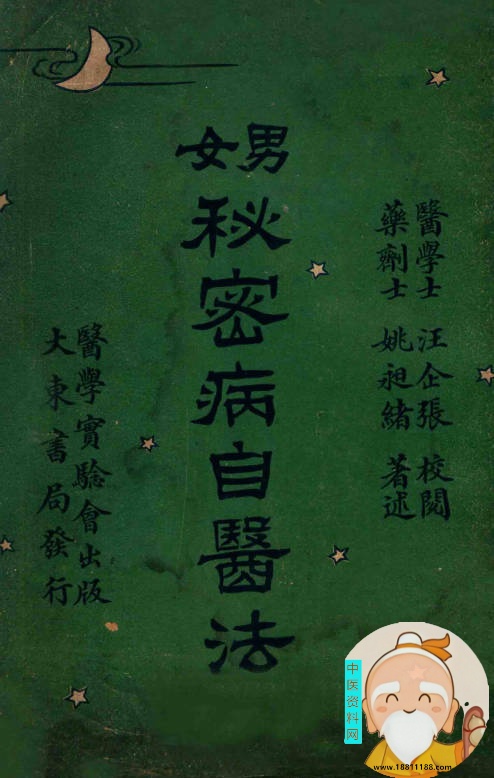 男女
秘密病自醫法
醫學士 汪企張 校閱
藥劑士 姚昶緒 著述
醫學實驗會出版
大東書局發行
中医资料网
www.18811188.com